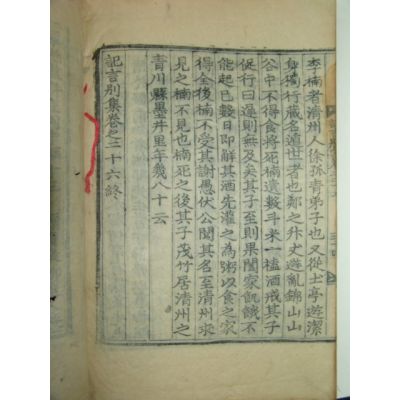 李楠者清州人徐孤青弟子也又從土亭遊潔
身獨行藏名遁世者也鄭之升避亂錦山山
谷中不得食將死楠遺數斗米一榼酒戒其子
促行曰遲則無及矣其子至則果闔家飢餓不
能起已數日即解其酒先灌之為粥以食之家
得全後楠不受其謝愚伏公聞其名至清州求
見之楠不見也楠死之後其子茂竹居清州之
青川縣墨井里年幾八十云
記言別集卷之二十六終